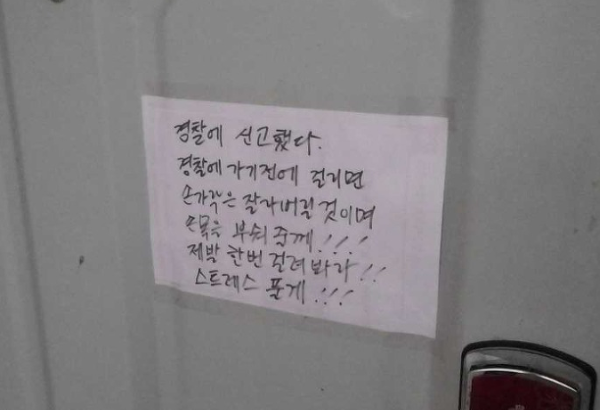 경찰에 신고했다.
경찰에 가기전에 걸리면
손가락은 잘라버릴 것이며
손목을 부숴 줄께!!!
제발 한번 걸려봐라!!
스트레스 풀게!!!